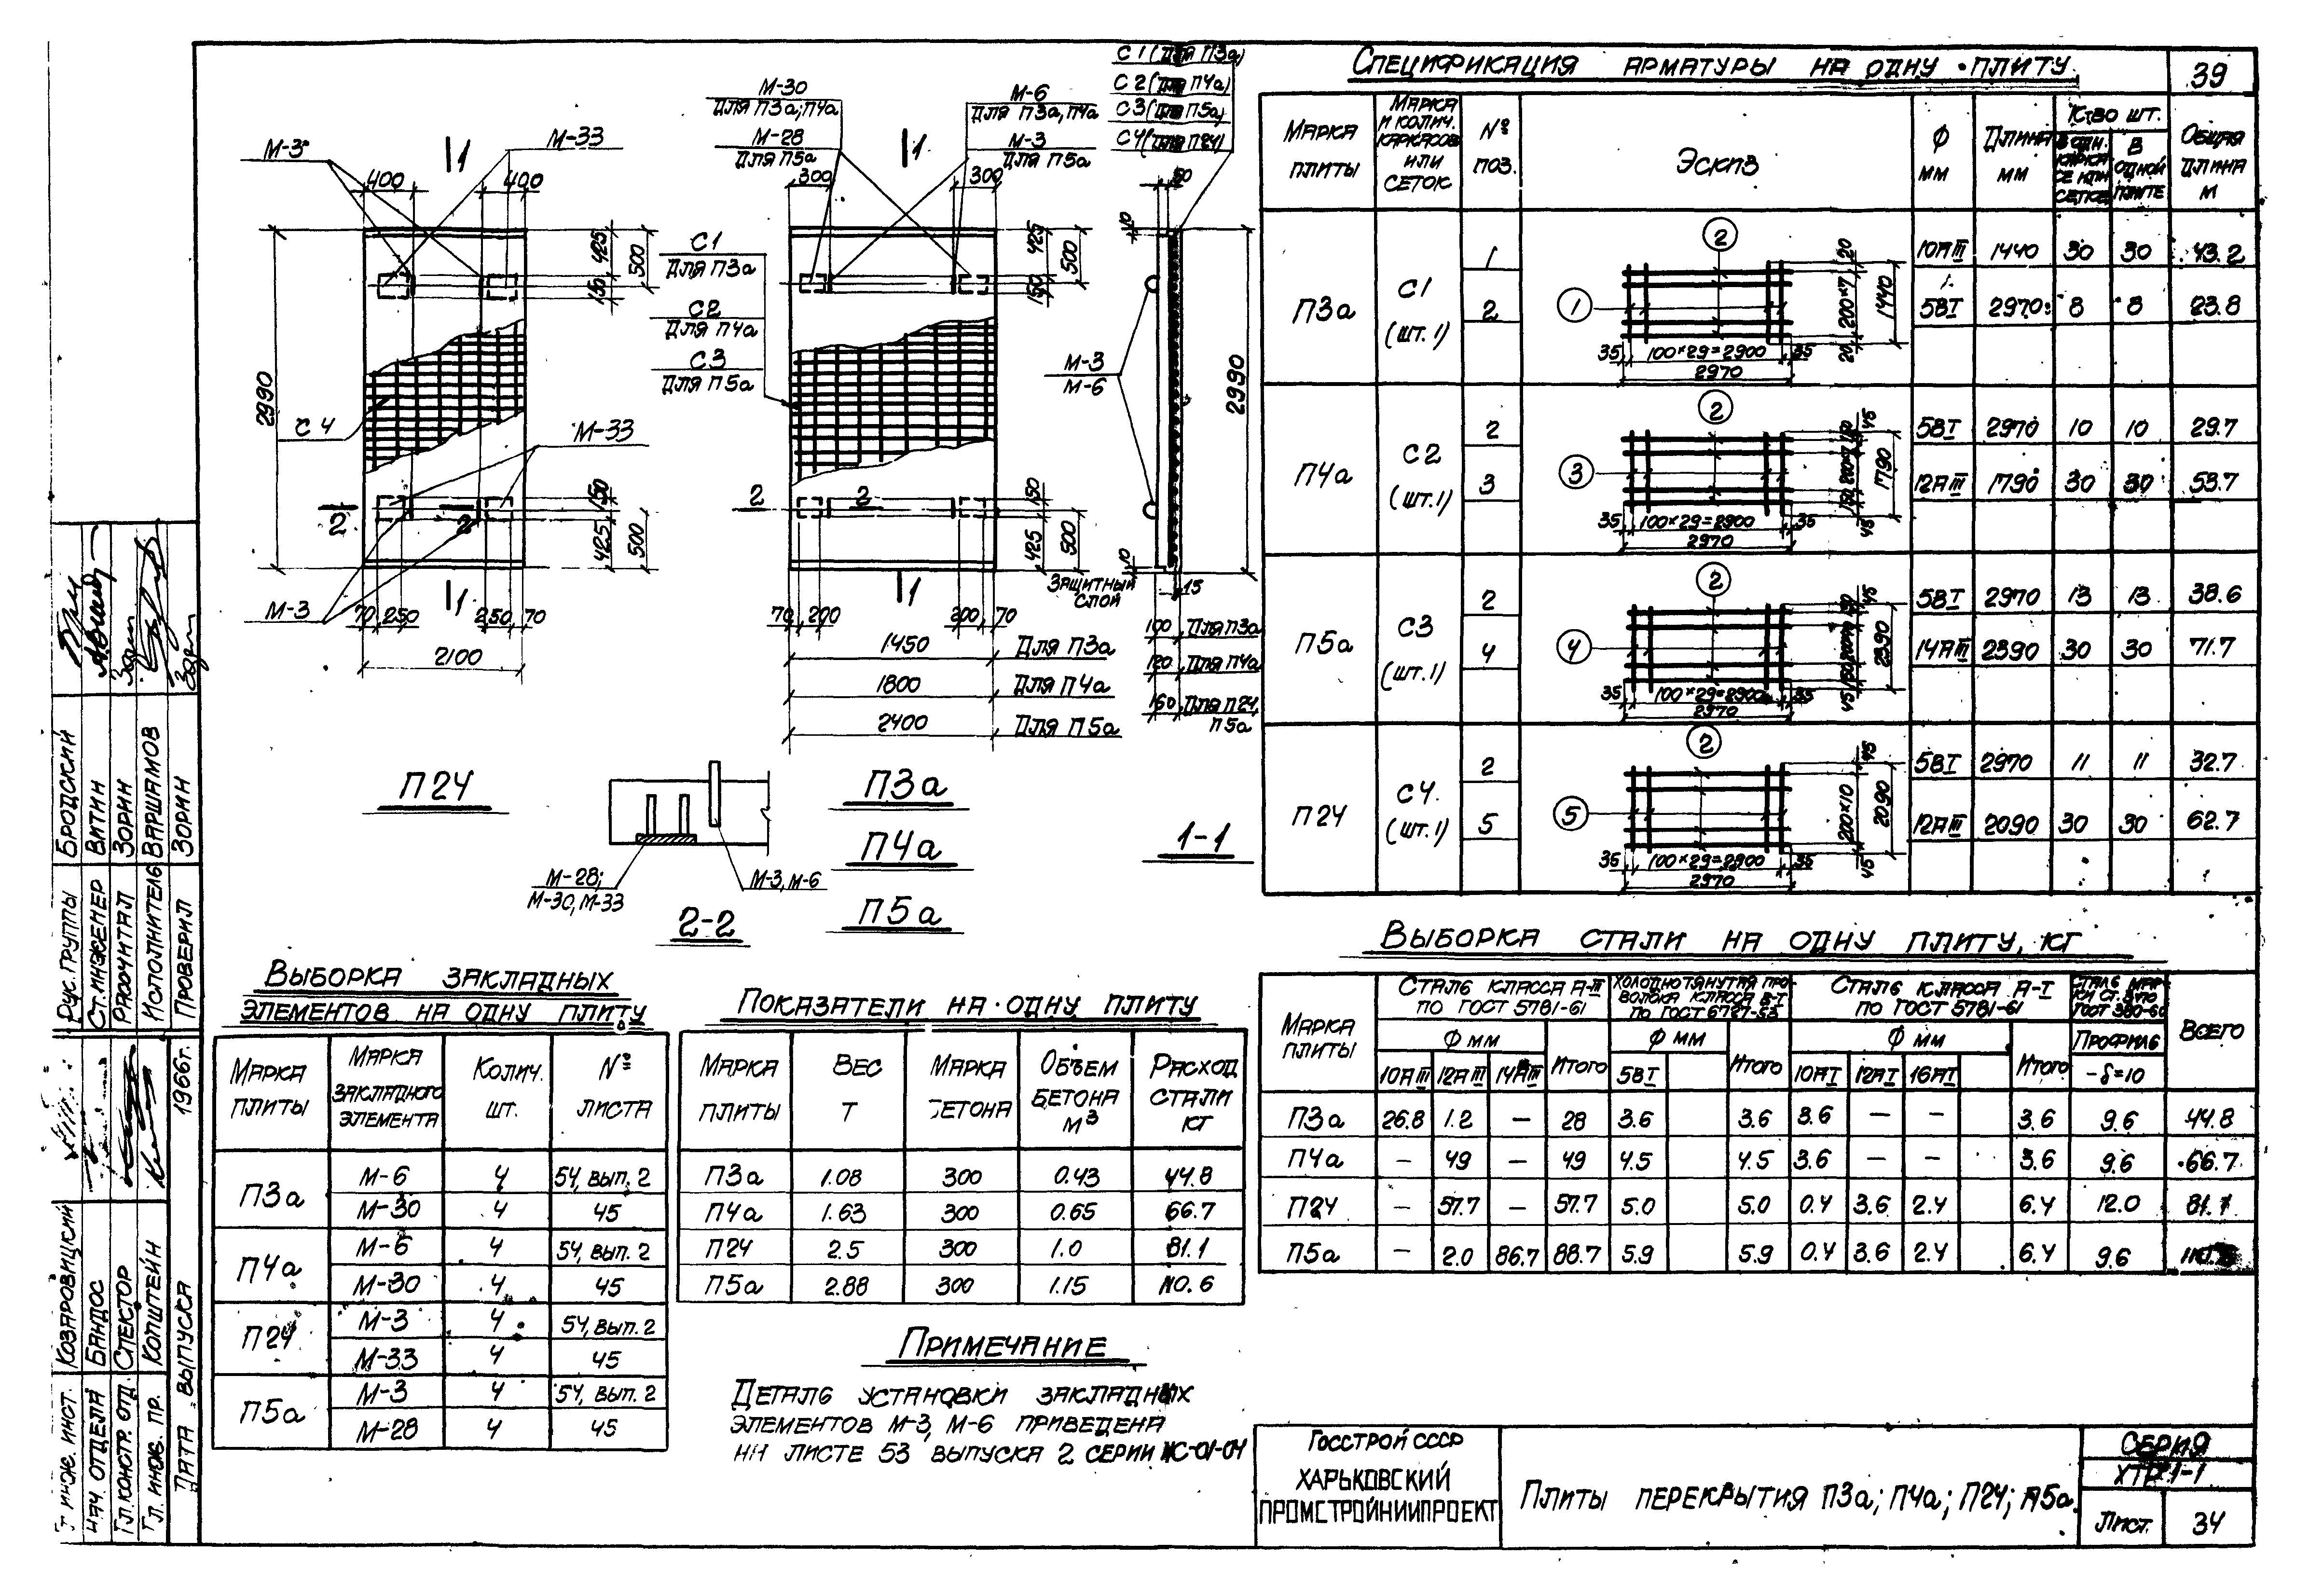 39
М-3
М-33
400
400
2990
425
150
500
С4
М-33
150
425
500
2
2
М-3
70
250
250
70
2100
1
1
П24
М-30
Для П3а; П4а
М-28
Для П5а
М-6
Для П3а, П4а
М-3
Для П5а
1
300
300
С1
Для П3а
С2
Для П4а
С3
Для П5а
425
500
150
2
2
150
425
500
1
70
200
200
70
1450
Для П3а
1800
Для П4а
2400
Для П5а
П3а
П4а
П5а
М-28;
М-30, М-33
М-3, М-6
2-2
С1 (Для П3а)
С2 (Для П4а)
С3 (Для П5а)
С4 (Для П24)
10
М-3
М-6
2990
10
Защитный
слой
15
100 Для П3а
120 Для П4а
160 Для П24,
П5а
1-1
Спецификация арматуры на одну плиту
Марка плиты
Марка и колич. каркасов или сеток
№ поз.
Эскиз
Ф мм
Длина мм
К-тво шт.
В одн. каркасе или сетке
В одной плите
Общая длина м
П3а С1 (шт. 1)
1 10АIII 1440 30 30 43.2
2 5ВI 2970 8 8 23.8
2
1
20
200×7
20
1440
35 100×29=2900 35
2970
П4а С2 (шт. 1)
2 5ВI 2970 10 10 29.7
3 12АIII 1790 30 30 53.7
2
3
45
150
200×7
150
45
1790
35 100×29=2900 35
2970
П5а С3 (шт. 1)
2 5ВI 2970 13 13 38.6
4 14АIII 2390 30 30 71.7
2
4
45
150
150
45
2390
35 100×29=2900 35
2970
П24 С4 (шт. 1)
2 5ВI 2970 11 11 32.7
5 12АIII 2090 30 30 62.7
2
5
45
200×10
45
2090
35 100×29=2900 35
2970
Выборка стали на одну плиту, кг
Марка плиты
Сталь класса А-III по ГОСТ 5781-61
Холоднотянутая проволока класса В-I по ГОСТ 6727-53
Сталь класса А-I по ГОСТ 5781-61
Сталь марки ст. 3 по ГОСТ 380-60
Всего
Ф мм Итого Ф мм Итого Ф мм Итого Профиль
10АIII 12АIII 14АIII 5ВI 10АI 12АI 16АI -δ=10
П3а 26.8 1.2 — 28 3.6 3.6 3.6 — — 3.6 9.6 44.8
П4а — 49 — 49 4.5 4.5 3.6 — — 3.6 9.6 66.7
П24 — 57.7 — 57.7 5.0 5.0 0.4 3.6 2.4 6.4 12.0 81.1
П5а — 2.0 86.7 88.7 5.9 5.9 0.4 3.6 2.4 6.4 9.6
Выборка закладных
элементов на одну плиту
Марка плиты
Марка закладного элемента
Колич. шт.
№ листа
П3а М-6 4 54, вып. 2
М-30 4 45
П4а М-6 4 54, вып. 2
М-30 4 45
П24 М-3 4 54, вып. 2
М-33 4 45
П5а М-3 4 54, вып. 2
М-28 4 45
Показатели на одну плиту
Марка плиты
Вес Т
Марка бетона
Объем бетона м³
Расход стали кг
П3а 1.08 300 0.43 44.8
П4а 1.63 300 0.65 66.7
П24 2.5 300 1.0 81.1
П5а 2.88 300 1.15 110.6
Примечание
Деталь установки закладных
элементов М-3, М-6 приведена
на листе 53 выпуска 2 серии ИС-01-04
Госстрой СССР
Харьковский
Промстройниипроект
Плиты перекрытия П3а; П4а; П24; П5а.
Серия
Лист 34
Рук. группы Бродский
Ст. инженер Витин
Рассчитал Зорин
Исполнитель Варшамов
Проверил Зорин
Гл. инж. инст. Козаровицкий
Нач. отдела Бандос
Гл. констр. отд. Спектор
Гл. инж. пр. Копштейн
Дата выпуска 1966г.